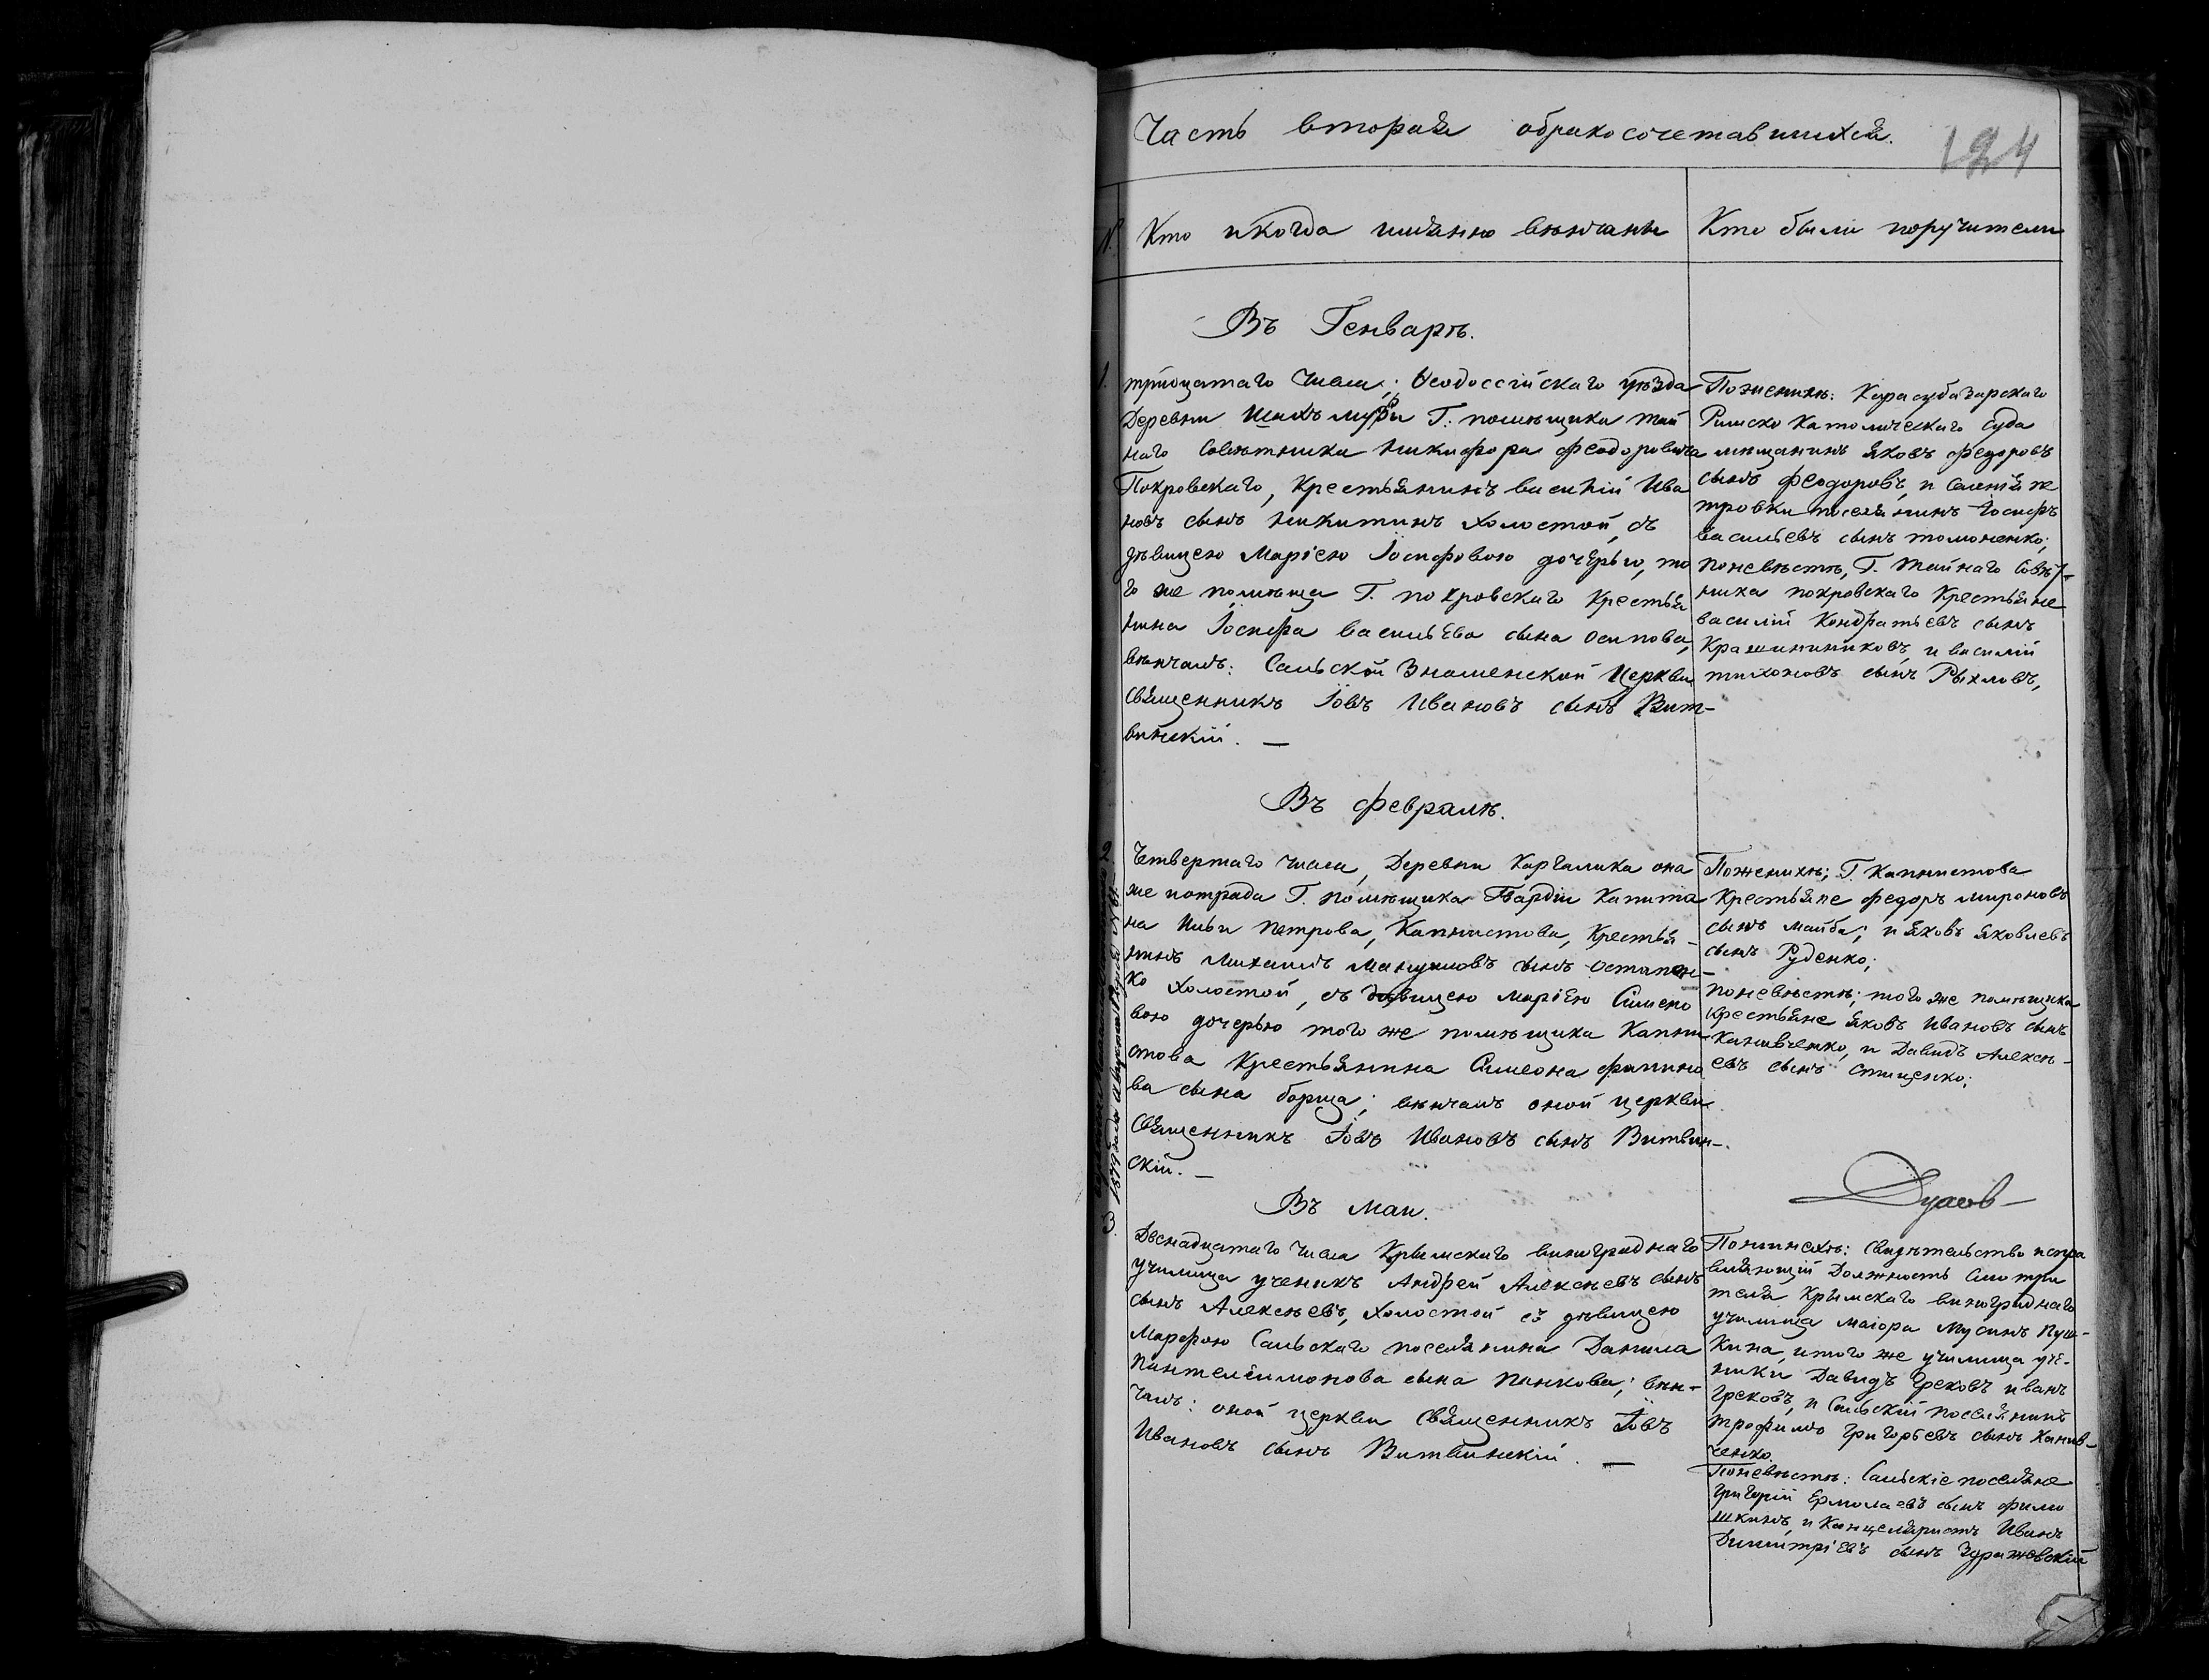 Часть вторая обракосочетавшихся.
124
№
Кто икогда имянно венчаны
Кто были поручители
Въ Генваръ.
1.
тритцатаго числа; Ѳеодоссійскаго уѣзда
Деревни Шахъ мурзы Г: помѣщика тай
наго Совѣтника Никифора Феодоровича
Покровскаго, Крестьянинъ василій Ива
новъ сынъ Никитинъ холостой, съ
дѣвицею Маріею Іосифовою дочерью, то
го же помѣща Г. покровскаго Крестья
нина Іосифа васильева сына осипова,
вѣнчалъ: Сальской Знаменской Церкви
священникъ Іовъ Ивановъ сынъ Вит-
винскій. —
Поженихѣ: Карасубазарскаго
Римско Католическаго Суда
мещанинъ яковъ федоровъ
сынъ феодоровъ, и
поселянинъ Іосифъ
васильевъ сынъ
поневѣстѣ, Г. Тайнаго Совѣт-
ника покровскаго Крестьяне
василій Кондратьевъ сынъ
Крашининиковъ, и василій
тихоновъ сынъ Рыхловъ,
Въ февралѣ.
2.
Четвертаго числа, Деревни Каргалика она
же Г. помѣщика Гвардіи Капита
на Ильи Петрова, Капнистова, Крестья-
нинъ Михаилъ сынъ Остапен-
ко холостой, съ дѣвицею Маріею Симено
вою дочерью того же помѣщика Капни
стова Крестьянина Симеона филипо
ва сына борща; вѣнчалъ оной церкви
Священникъ Іовъ Ивановъ сынъ Витвин-
скій. —
Поженихѣ; Г. Капнистова
Крестьяне федоръ мироновъ
сынъ майба; и яковъ яковлевъ
сынъ Руденко;
поневѣстѣ; того же помѣщика
крестьяне яковъ Ивановъ сынъ
Канивченко, и Давидъ Алексѣ-
евъ сынъ стиценко;
Въ маи.
3.
Двенадцатаго числа Крымскаго винограднаго
училища ученикъ Андрей Алексѣевъ сынъ
сынъ Алексѣевъ, холостой съ дѣвицею
Марфою Сальскаго поселянина Данила
Пантелеимонова сына панкова; вѣн-
чалъ: оной церкви священникъ Іовъ
Ивановъ сынъ Витвинскій. —
свидѣтельство испра
вляющій Должность Смотри
теля Крымскаго винограднаго
училища маіора Мусинъ Пуш-
кина, итого же училища уче-
ники Давидъ Грековъ иванъ
Грековъ, и Сальскій поселянинъ
трофимъ Григорьевъ сынъ Канив-
ченко.
Поневѣстѣ: Сальскіе поселяне
Григорій Ермолаевъ сынъ филю
шкинъ, и Канцеляристъ Иванъ
Димитріевъ сынъ